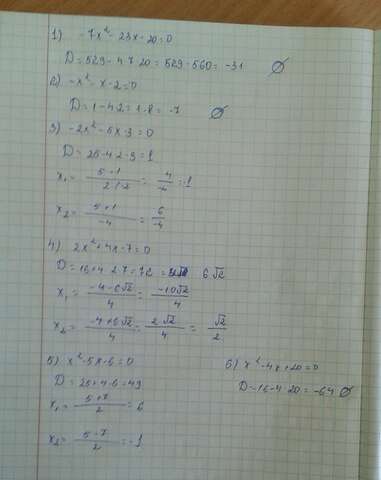 1) -7x² - 23x - 20 = 0
D = 529 - 4 7 20 = 529 - 560 = -31 ∅
2) -x² - x - 2 = 0
D = 1 - 4 2 = 1 - 8 = -7 ∅
3) -2x² - 5x - 3 = 0
D = 25 - 4 2 3 = 1
x₁ = 5-1 / 2(-2) = 4/-4 = -1
x₂ = 5+1 / -4 = 6/-4
4) 2x² + 4x - 7 = 0
D = 16 + 4 2 7 = 72 = 6√2
x₁ = -4-6√2 / 4 = -10√2 / 4
x₂ = -4+6√2 / 4 = 2√2 / 4 = √2 / 2
5) x² - 5x - 6 = 0
D = 25 + 4 6 = 49
x₁ = 5+7 / 2 = 6
x₂ = 5-7 / 2 = -1
6) x² - 4x + 20 = 0
D = 16 - 4 20 = -64 ∅